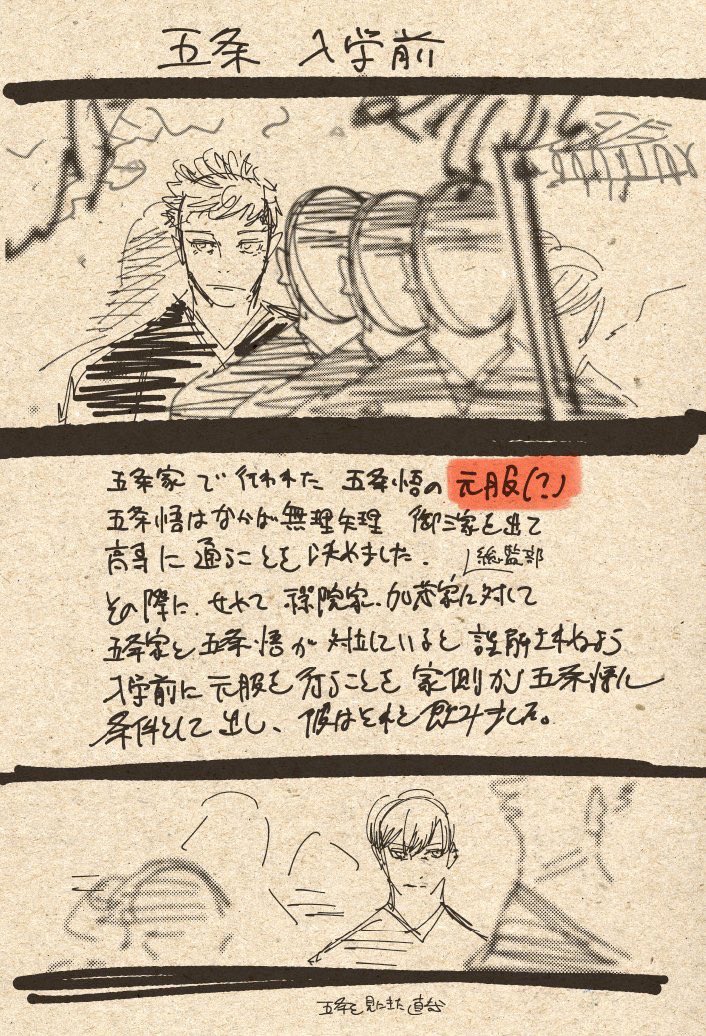 五条 入学前
五条家で行われた 五条悟の 元服(?)
五条悟はなかば無理矢理 御三家を出て
高専に通ることを決めました.
総監部
その際に、せめて 禪院家、加茂家に対して
五条家と五条悟が対立していると誤解されぬよう
入学前に元服を行ることを 家側が 五条悟に
条件として出し、彼はそれを飲みました。
五条を見にきた直哉